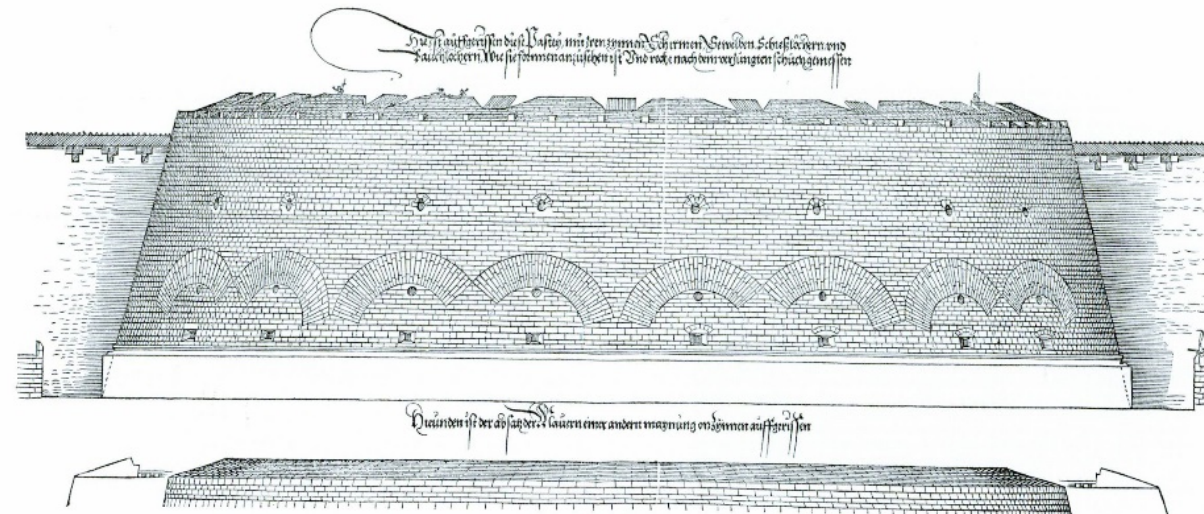 Hie ist auffgerissen diese Pastey, mit iren zynnen Schirmen Gewelben Schießlöchern und
Rauchlöchern, Wie sie fornnen anzusehen ist Und recht nach dem verjüngten schuch gemessen
Hieunden ist der absatz der Mauern einer andern meynung on Zynnen auffgerissen